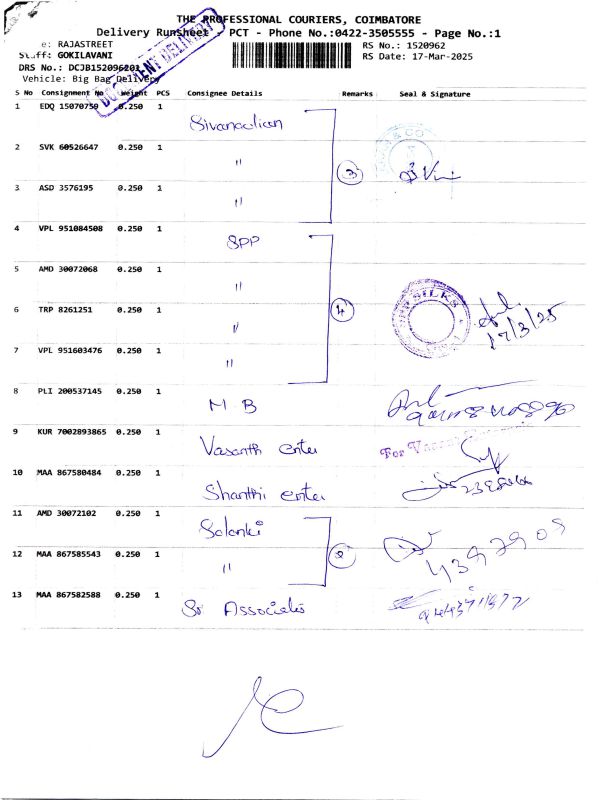 THE PROFESSIONAL COURIERS, COIMBATORE
Delivery RunSheet - PCT - Phone No.:0422-3505555 - Page No.:1
e: RAJASTREET
RS No.: 1520962
Staff: GOKILAVANI
RS Date: 17-Mar-2025
DRS No.: DCJB152096201
Vehicle: Big Bag Delivery
DOCUMENT DELIVERY
S No Consignment No Weight PCS Consignee Details Remarks Seal & Signature
1 EDQ 15070759 0.250 1
2 SVK 60526647 0.250 1 "
3
& CO
3 ASD 3576195 0.250 1 "
4 VPL 951084508 0.250 1 SPP
5 AMD 30072068 0.250 1 "
6 TRP 8261251 0.250 1 "
4
SILKS
17/3/25
7 VPL 951603476 0.250 1 "
8 PLI 200537145 0.250 1 M B
9 KUR 7002893865 0.250 1 Vasanth enter
For
10 MAA 867580484 0.250 1 Shanthi enter
11 AMD 30072102 0.250 1 Solanki
12 MAA 867585543 0.250 1 "
2
13 MAA 867582588 0.250 1 Sr Associates